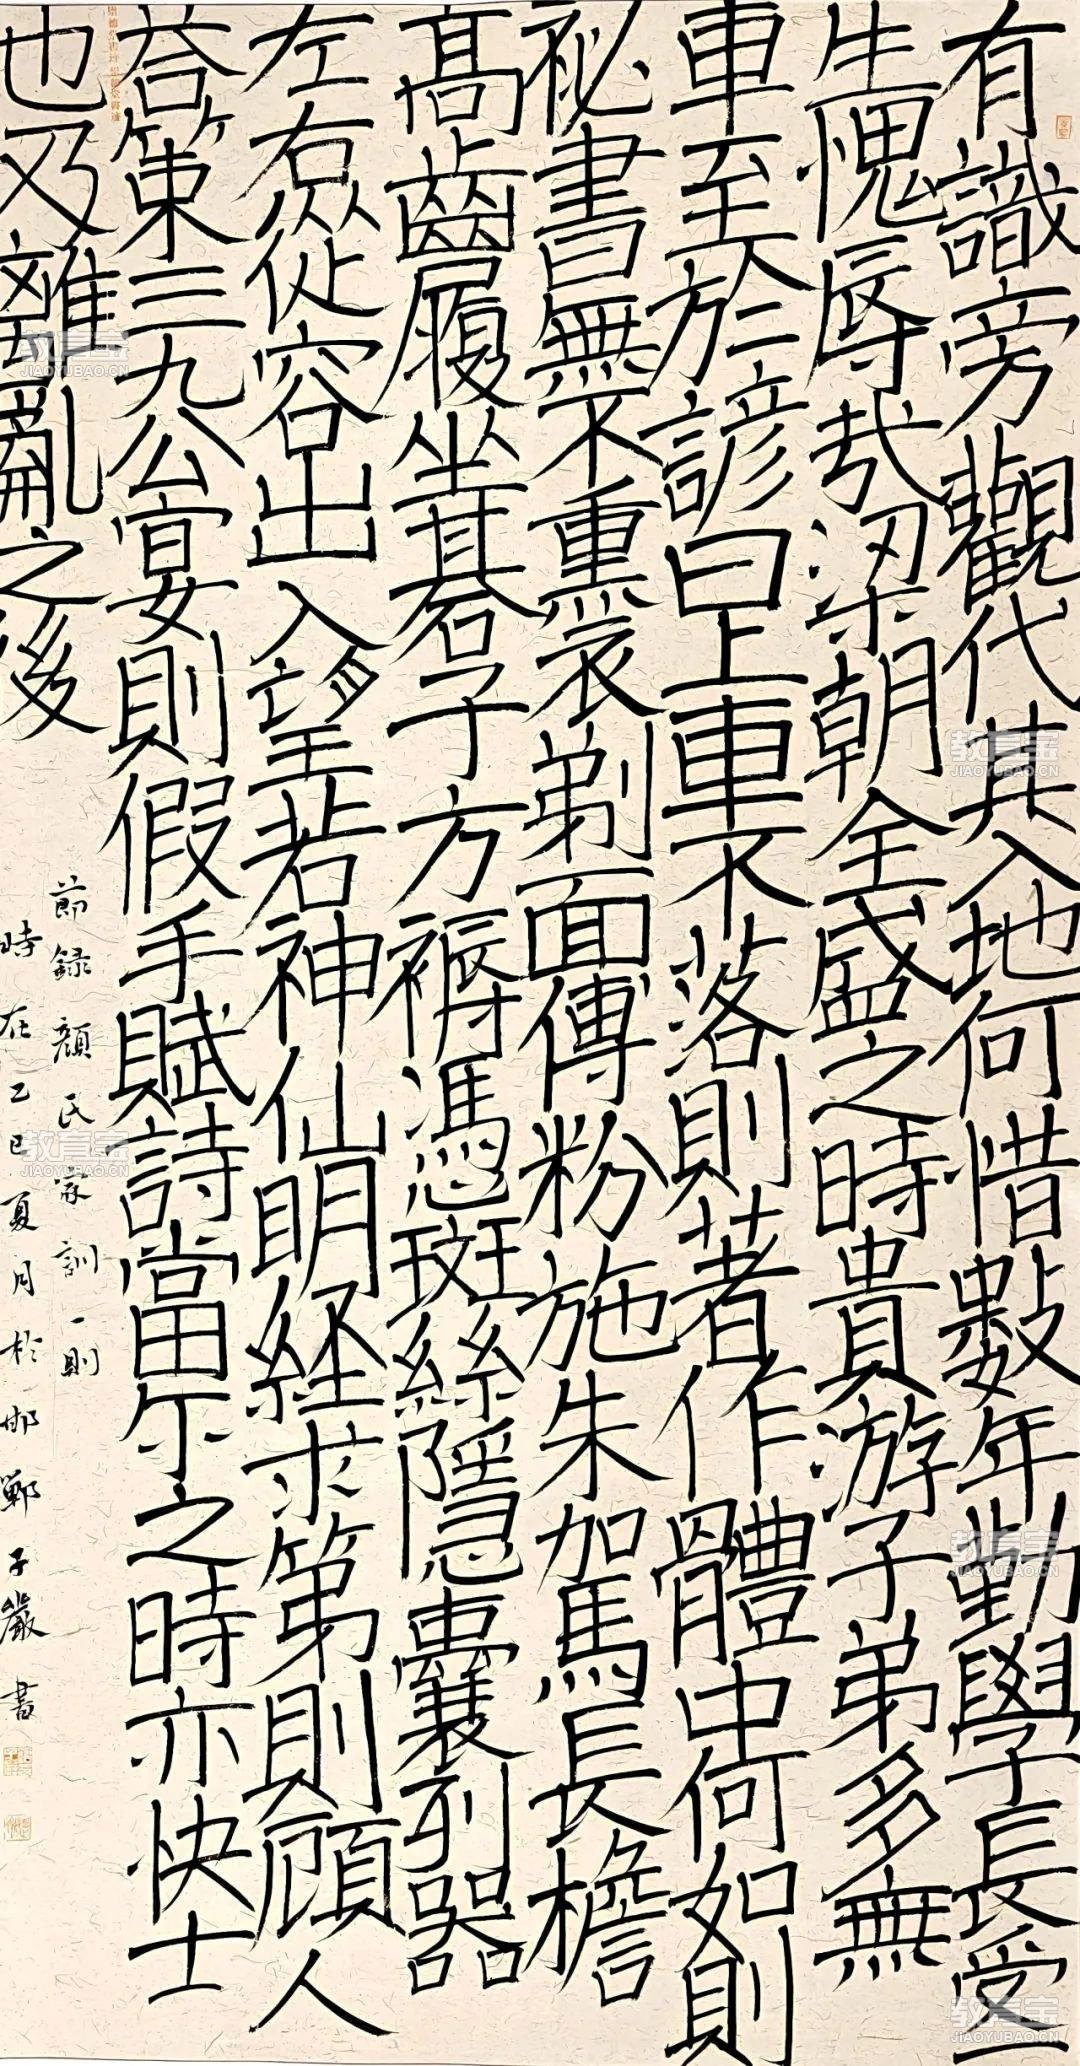 有識旁觀代其入地何惜數年勤學長受一
生愧辱哉梁朝全盛之時貴游子弟多無
車至於諺曰上車不落則著作體中何如則
祕書無不熏衣剃面傅粉施朱駕長檐
高齒履坐棊子方褥憑斑絲隱囊列器
左右從容出入望若神仙明經求第則顧人
荅策三九公宴則假手賦詩當尔之時亦快士
也及離亂之後
節録顏氏家訓一則
時在乙巳夏月於邯鄲子嚴書
教育宝
JIAOYUBAO.CN
教育宝
JIAOYUBAO.CN
教育宝
JIAOYUBAO.CN
教育宝
JIAOYUBAO.CN
教育宝
JIAOYUBAO.CN